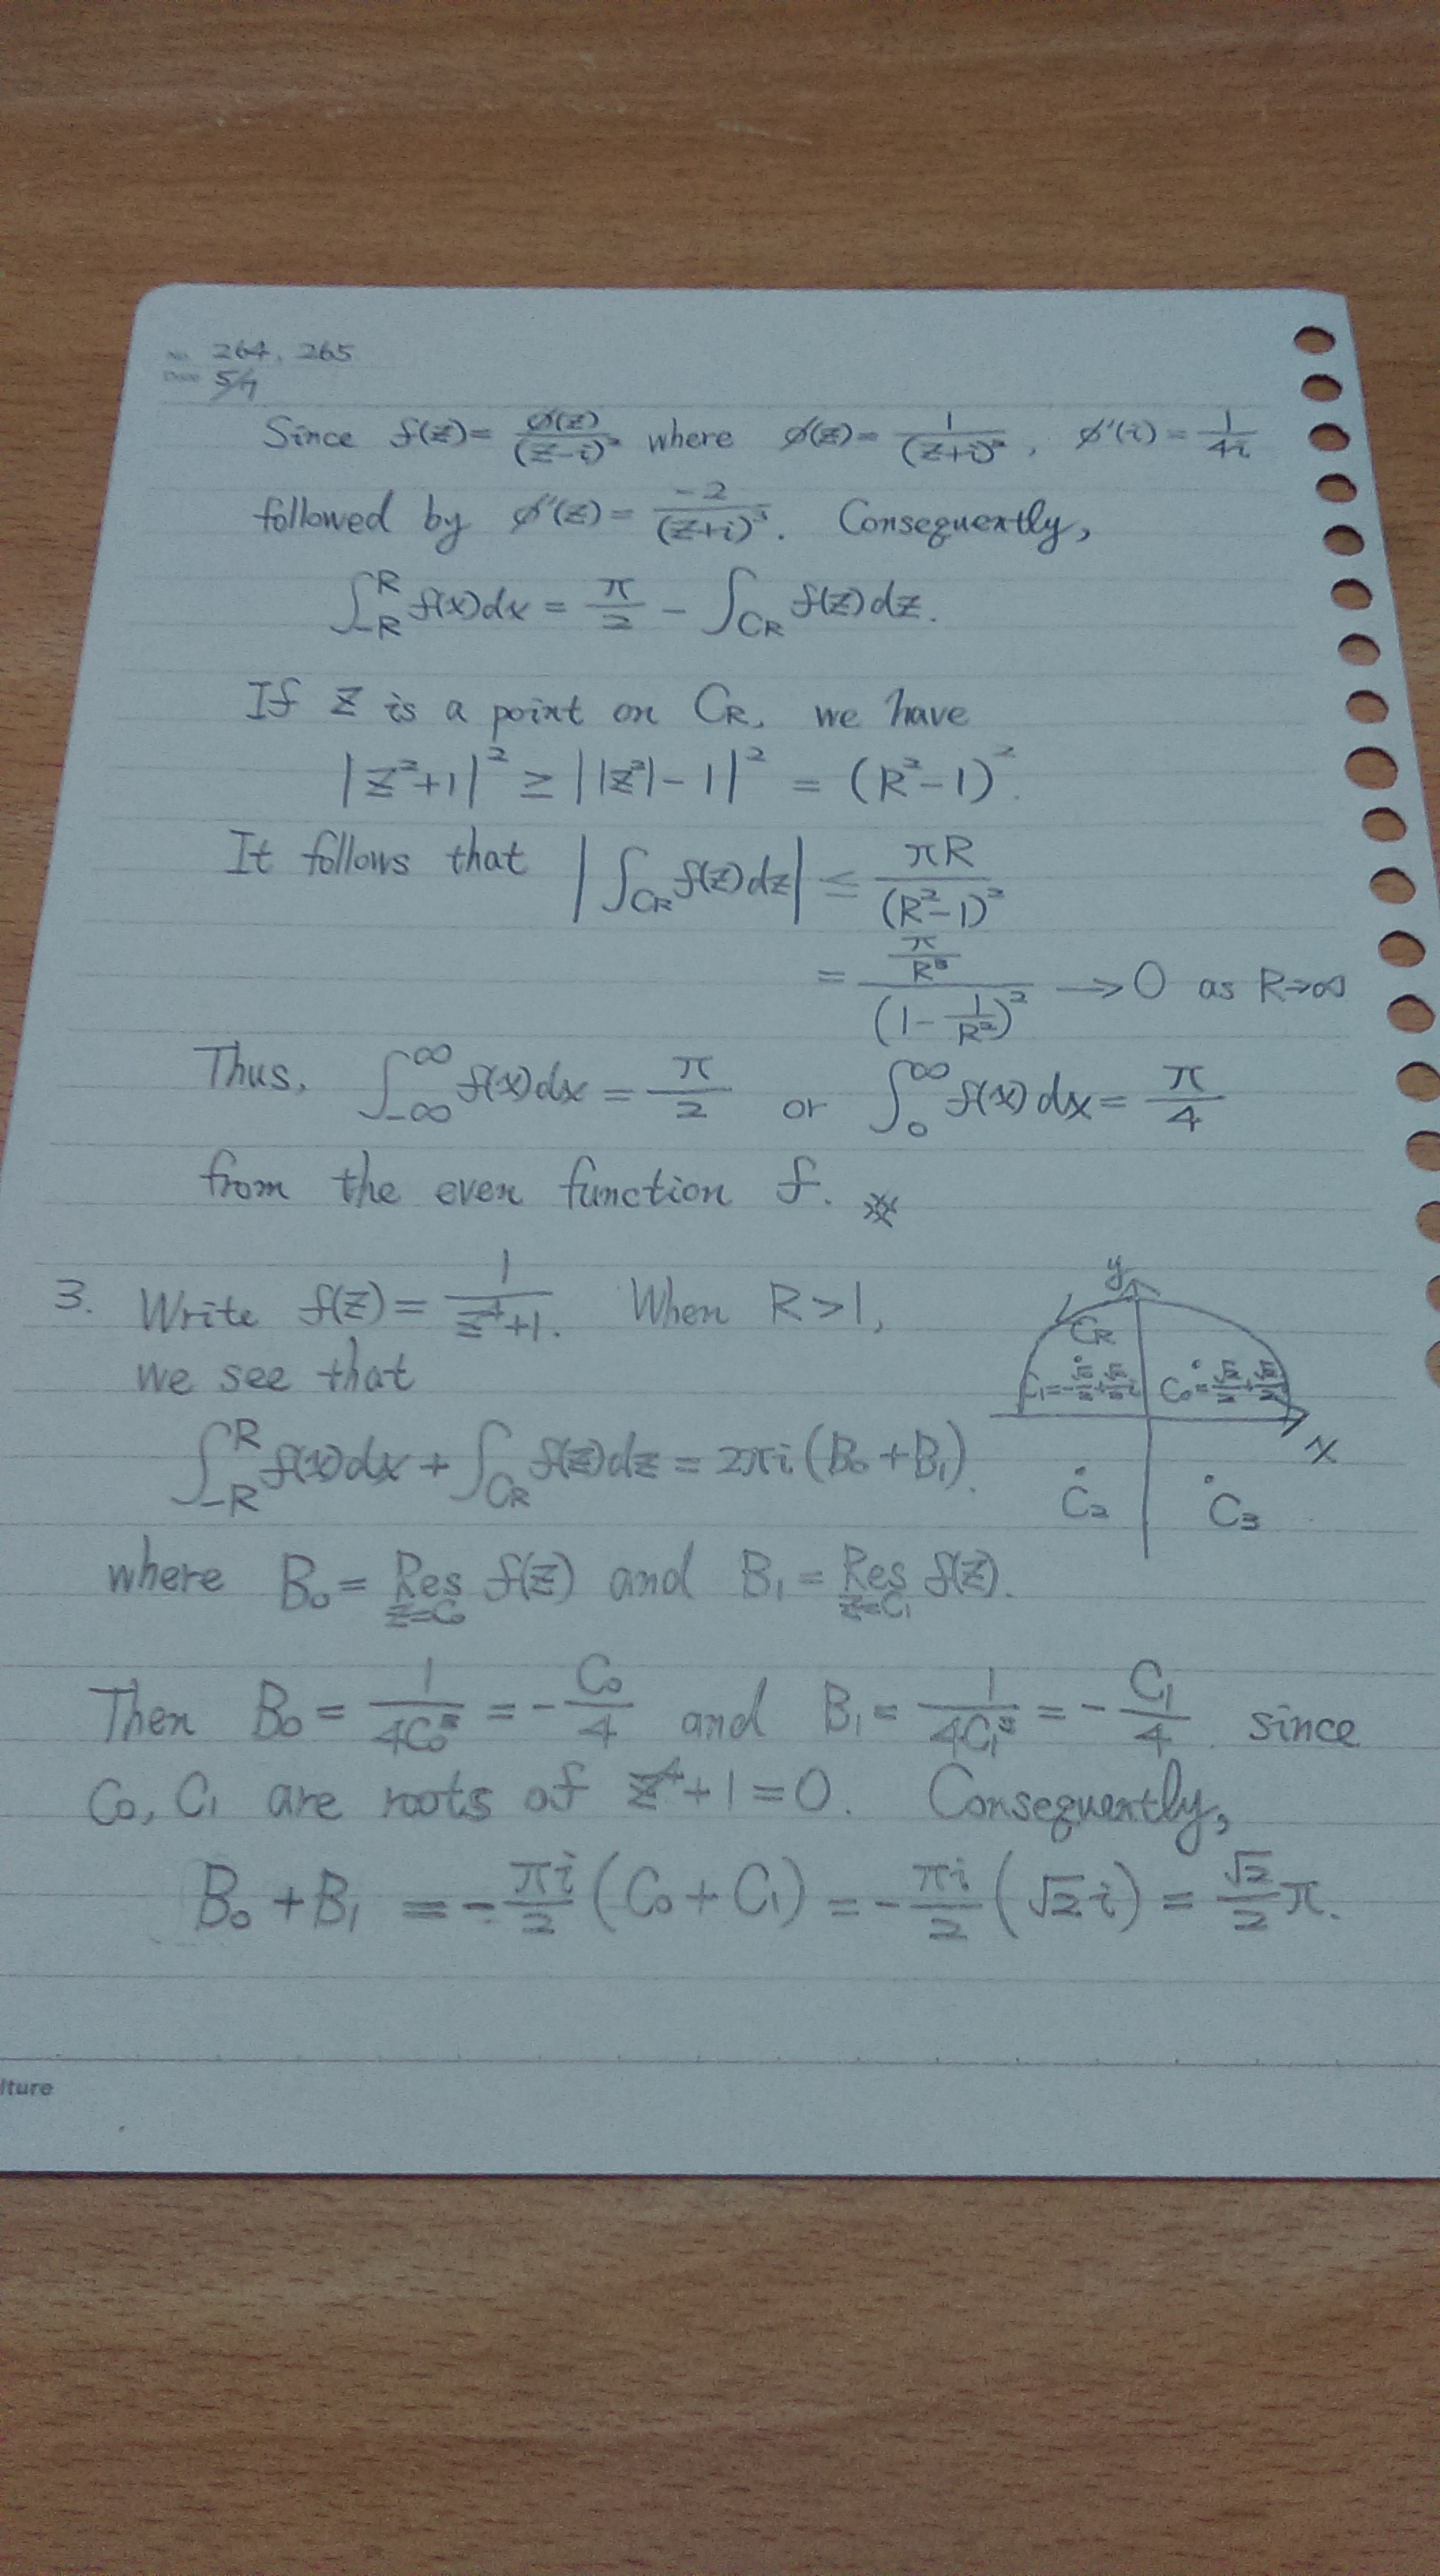 No. 264, 265
Date 5/7
Since f(z) = φ(z)/(z-i)² where φ(z) = 1/(z+i)², φ'(i) = 1/4i
followed by φ'(z) = -2/(z+i)³. Consequently,
∫_{-R}^{R} f(x)dx = π/2 - ∫_{C_R} f(z)dz.
If z is a point on C_R, we have
|z²+1|² ≥ ||z²|-1|² = (R²-1)².
It follows that |∫_{C_R} f(z)dz| ≤ πR/(R²-1)²
= (π/R³)/(1-1/R²)² → 0 as R→∞
Thus, ∫_{-∞}^{∞} f(x)dx = π/2 or ∫_0^∞ f(x)dx = π/4
from the even function f. ※
3. Write f(z) = 1/(z⁴+1). When R>1,
we see that
∫_{-R}^{R} f(x)dx + ∫_{C_R} f(z)dz = 2πi(B₀+B₁).
where B₀ = Res_{z=C₀} f(z) and B₁ = Res_{z=C₁} f(z).
y
C_R
C₁=-√2/2+√2/2 i C₀=√2/2+√2/2
x
C₂ C₃
Then B₀ = 1/4C₀³ = -C₀/4 and B₁ = 1/4C₁³ = -C₁/4, since
C₀, C₁ are roots of z⁴+1=0. Consequently,
B₀+B₁ = -πi/2 (C₀+C₁) = -πi/2 (√2 i) = √2/2 π.
lture